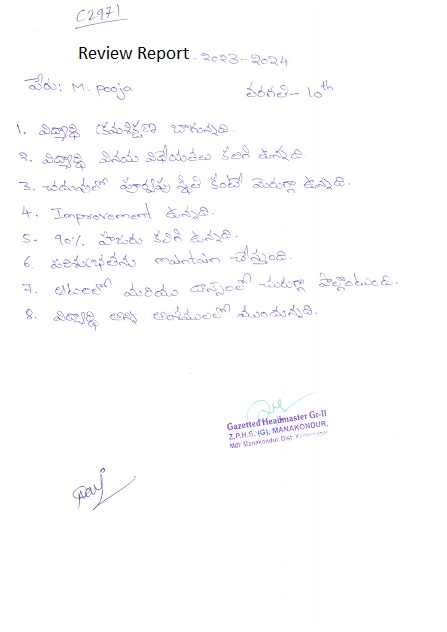 C2971
Review Report - 2023-2024
పేరు: M. pooja తరగతి- 10th
1. విద్యార్థి క్రమశిక్షణ బాగున్నది.
2. విద్యార్థి వినయ విధేయతలు కలిగి ఉన్నది.
3. చదువులో పూర్వపు స్థితి కంటే మెరుగ్గా ఉన్నది.
4. Improvement ఉన్నది.
5. 90% హాజరు కలిగి ఉన్నది.
6. పరిశుభ్రతను maintain చేస్తుంది.
7. ఆటలలో మరియు డాన్సులలో చురుగ్గా పాల్గొంటుంది.
8. విద్యార్థి అన్ని అంశములలో ముందున్నది.
Gazetted Headmaster Gr-II
Z.P.H.S. (G), MANAKONDUR,
Mdl: Manakondur, Dist.